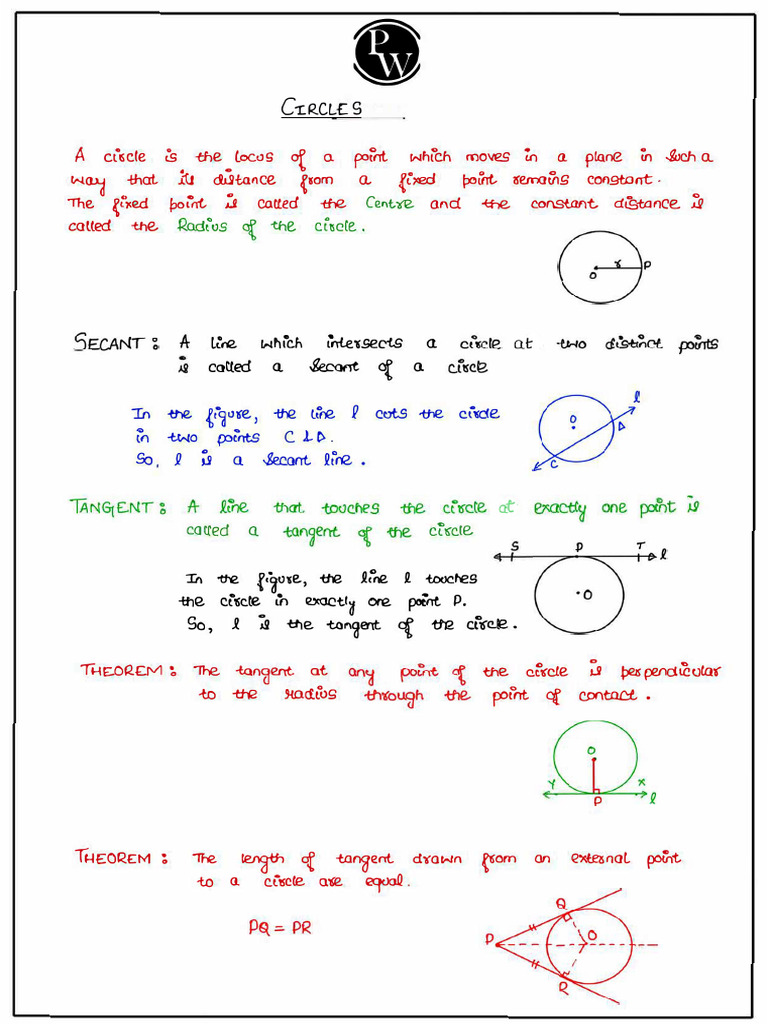 PW
CIRCLES
A circle is the locus of a point which moves in a plane in such a
way that its distance from a fixed point remains constant.
The fixed point is called the Centre and the constant distance is
called the Radius of the circle.
O r P
SECANT: A line which intersects a circle at two distinct points
is called a secant of a circle
In the figure, the line l cuts the circle
in two points C & D.
So, l is a secant line.
l
O
D
C
TANGENT: A line that touches the circle at exactly one point is
called a tangent of the circle
S P T l
O
In the figure, the line l touches
the circle in exactly one point P.
So, l is the tangent of the circle.
THEOREM: The tangent at any point of the circle is perpendicular
to the radius through the point of contact.
O
Y X
P l
THEOREM: The length of tangent drawn from an external point
to a circle are equal.
PQ = PR
Q
P O
R